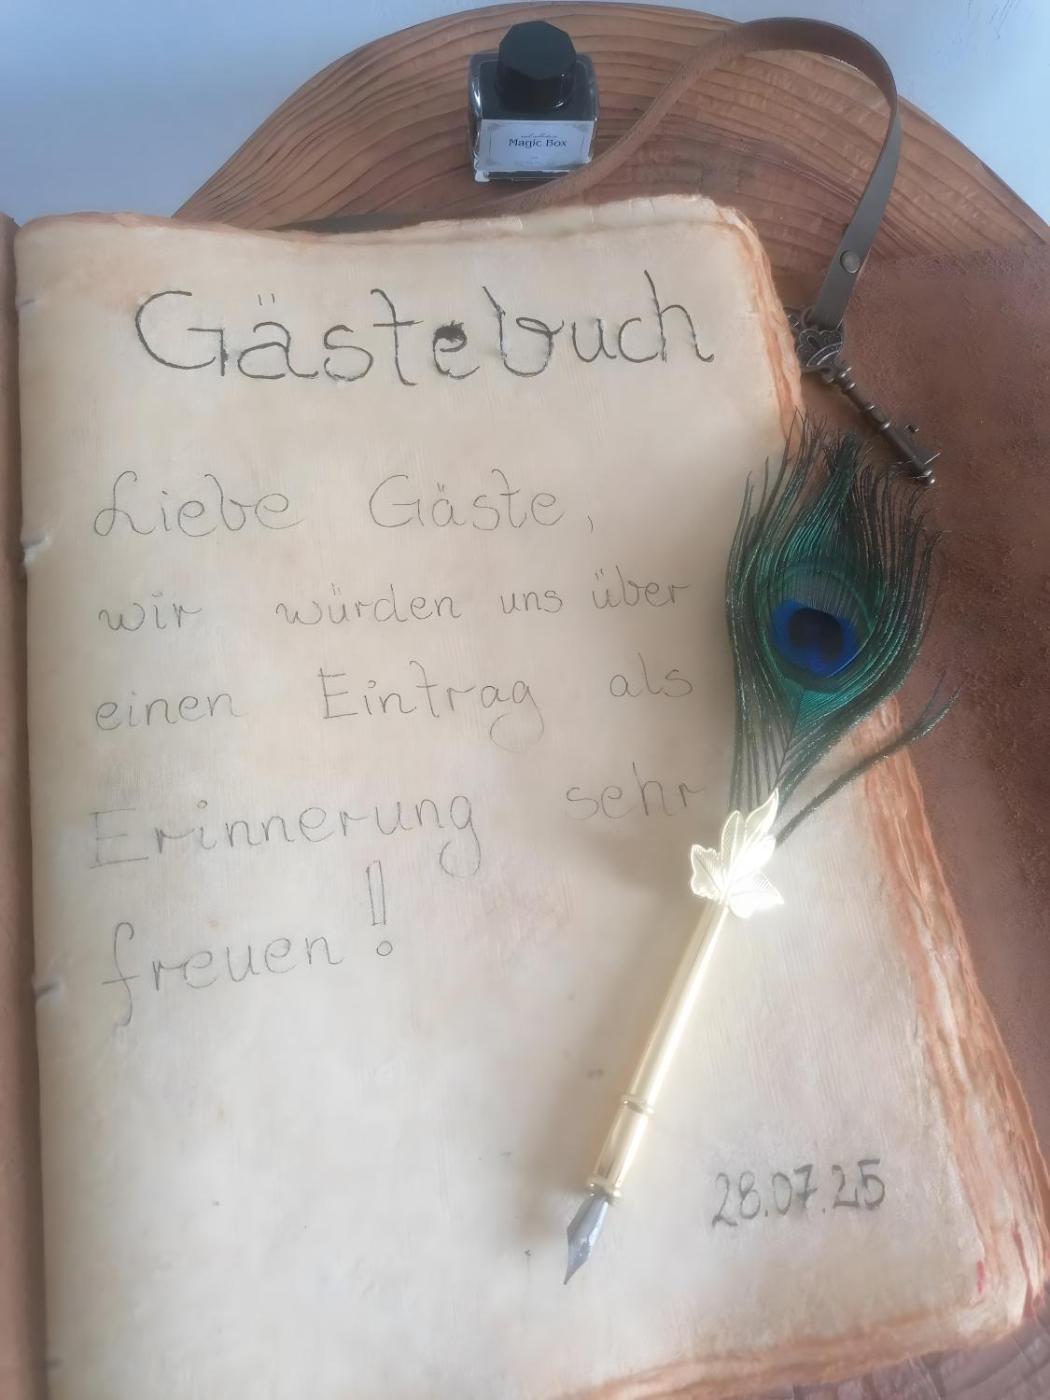 Magic Box
Gästebuch
Liebe Gäste,
wir würden uns über
einen Eintrag als
Erinnerung sehr
freuen!
28.07.25